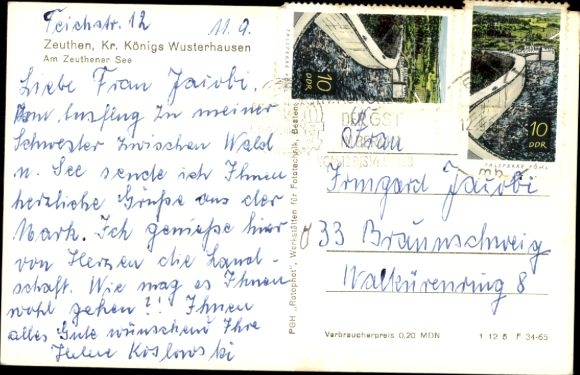 Teichstr. 12 11.9.
Zeuthen, Kr. Königs Wusterhausen
Am Zeuthener See
Liebe Frau Jacobi,
Vom Ausflug zu meiner
Schwester zwischen Wald
u. See sende ich Ihnen
herzliche Grüße aus der
Mark. Ich genieße hier
von Herzen die Land-
schaft. Wie mag es Ihnen
wohl gehen?! Ihnen
alles Gute wünschend Ihre
Koslowski
PGH „Rotophot", Werkstätten für Fototechnik, Bestens
10
DDR
10
DDR
TALSPERRE PÖHL
Frau
Irmgard Jacobi
33 Braunschweig
Walkürenring 8
Verbraucherpreis 0,20 MDN 1 12 5 F 34-65